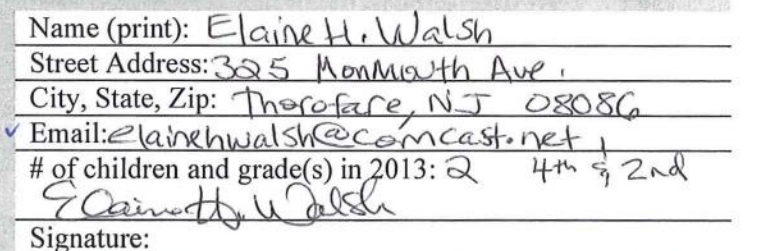 Name (print): Elaine H. Walsh
Street Address: 325 Monmouth Ave.
City, State, Zip: Thorofare, NJ 08086
✓ Email: elainehwalsh@comcast.net
# of children and grade(s) in 2013: 2 4th & 2nd
Elaine H. Walsh
Signature: